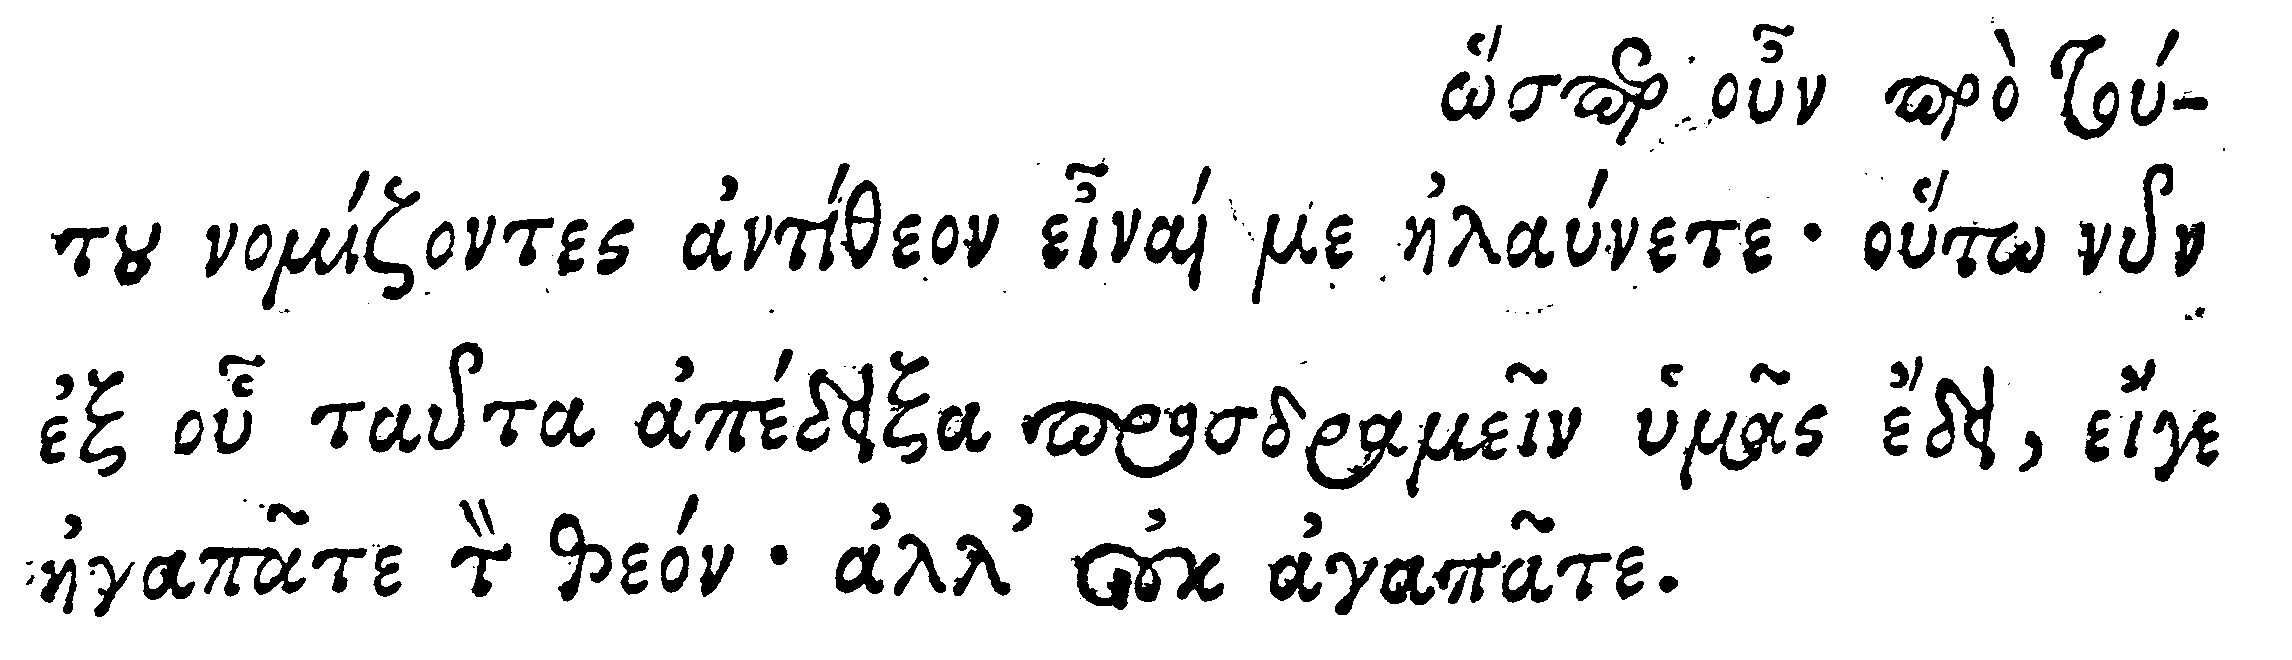 ὥσπερ οὖν πρὸ τού-
του νομίζοντες ἀντίθεον εἶναί με ἠλαύνετε· οὕτω νῦν
ἐξ οὗ ταῦτα ἀπέδειξα προσδραμεῖν ὑμᾶς ἔδει, εἴγε
ἠγαπᾶτε τὸν θεόν· ἀλλ’ οὐκ ἀγαπᾶτε.